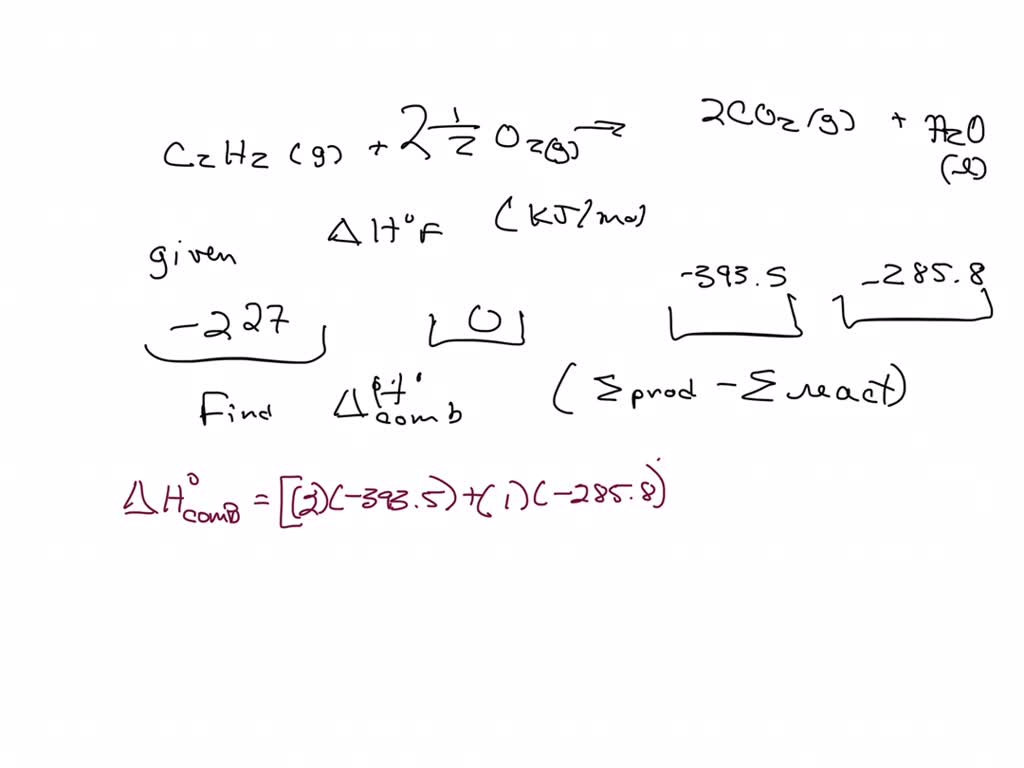 C2H2 (g) + 2 1/2 O2(g) → 2CO2 (g) + H2O (l)
given ΔH°F (KJ/mol)
-227 0 -393.5 -285.8
Find ΔH° comb (Σprod - Σreact)
ΔH°comB = [(2)(-393.5)+(1)(-285.8)